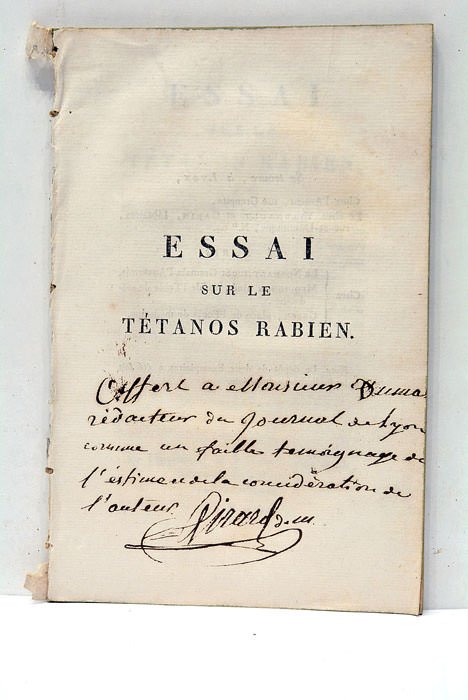 ESSAI
SUR LE
TÉTANOS RABIEN.
Offert a Monsieur Dumas
rédacteur du Journal de Lyon
comme un faible temoignage de
l'éstime et de la considération de
l'auteur Girard d.m